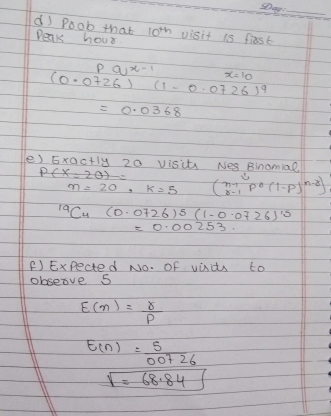 Day:
d) Prob that 10th visit is first
Peak hour
p q x-1 x=10
(0.0726) (1-0.0726)9
= 0.0368
e) Exactly 20 visits Neg Binomial
P(X=20) =
n = 20, k=5 (n-1 r-1 pr (1-p)n-r)
19C4 (0.0726)5 (1-0.0726)15
= 0.00253.
f) Expected No. of visits to
observe 5
E(n) = r/p
E(n) = 5
00726
= 68.84